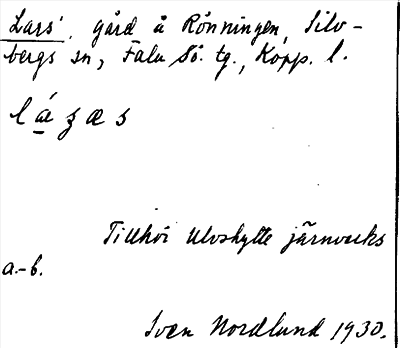 Lars', gård å Rönningen, Silv-
bergs sn, Falu Sö. tg., Kopp. l.
lá̱ʒæs
Tillhör Ulvshytte järnverks
a.-b.
Sven Nordlund 1930.